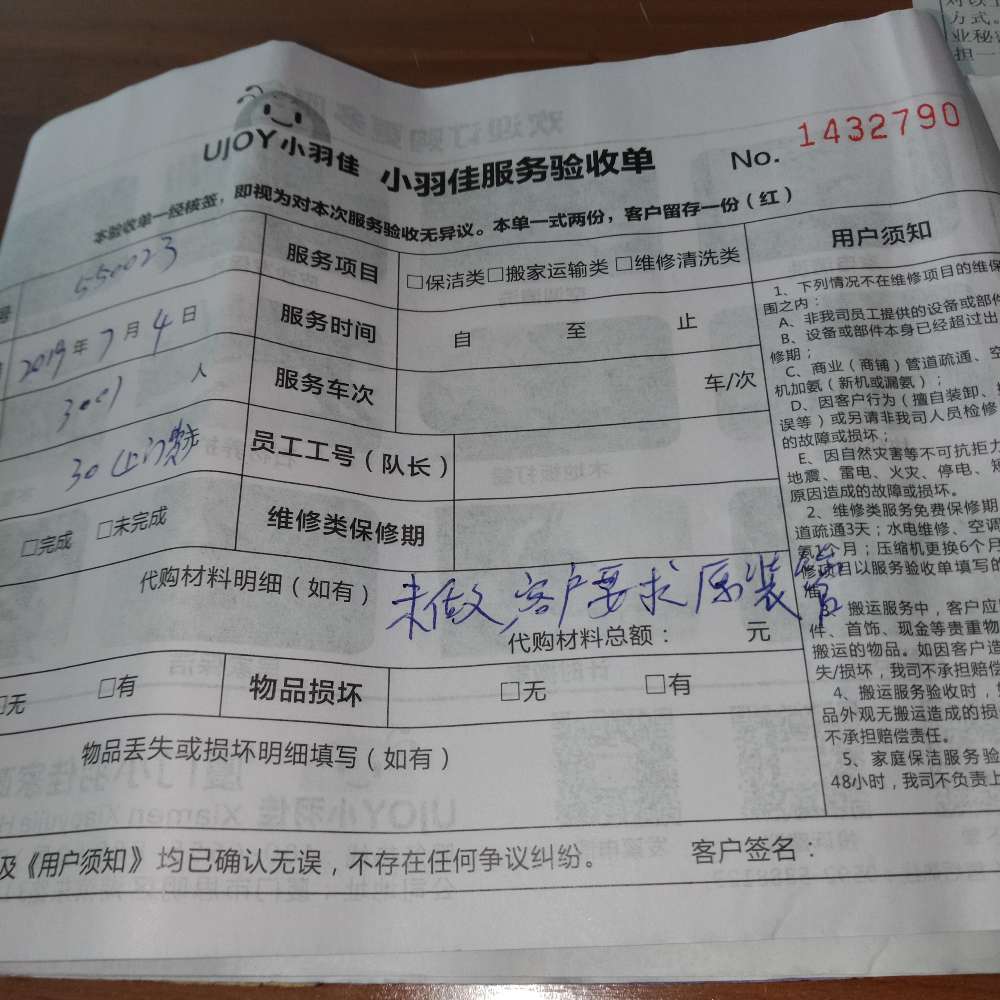 UJOY小羽佳 小羽佳服务验收单 No. 1432790
本验收单一经核签，即视为对本次服务验收无异议。本单一式两份，客户留存一份（红）
号 550023 服务项目 □保洁类□搬家运输类 □维修清洗类
2019年7月4日 服务时间 自 至 止
3001 人 服务车次 车/次
30(上门费) 员工工号（队长）
□完成 □未完成 维修类保修期
代购材料明细（如有） 未做，客户要求原装管
代购材料总额： 元
□无 □有 物品损坏 □无 □有
物品丢失或损坏明细填写（如有）
及《用户须知》均已确认无误，不存在任何争议纠纷。 客户签名：
用户须知
1、下列情况不在维修项目的维保
围之内：
A、非我司员工提供的设备或部件
B、设备或部件本身已经超过出
修期；
C、商业（商铺）管道疏通、空
机加氨（新机或漏氨）；
D、因客户行为（擅自装卸、
误等）或另请非我司人员检修
的故障或损坏；
E、因自然灾害等不可抗拒力
地震、雷电、火灾、停电、短
原因造成的故障或损坏。
2、维修类服务免费保修期
道疏通3天；水电维修、空调
氨1个月；压缩机更换6个月
修项目以服务验收单填写的
准
搬运服务中，客户应
件、首饰、现金等贵重物
搬运的物品。如因客户造
失/损坏，我司不承担赔偿
4、搬运服务验收时，
品外观无搬运造成的损
不承担赔偿责任。
5、家庭保洁服务验
48小时，我司不负责上
方式。
业秘
担一